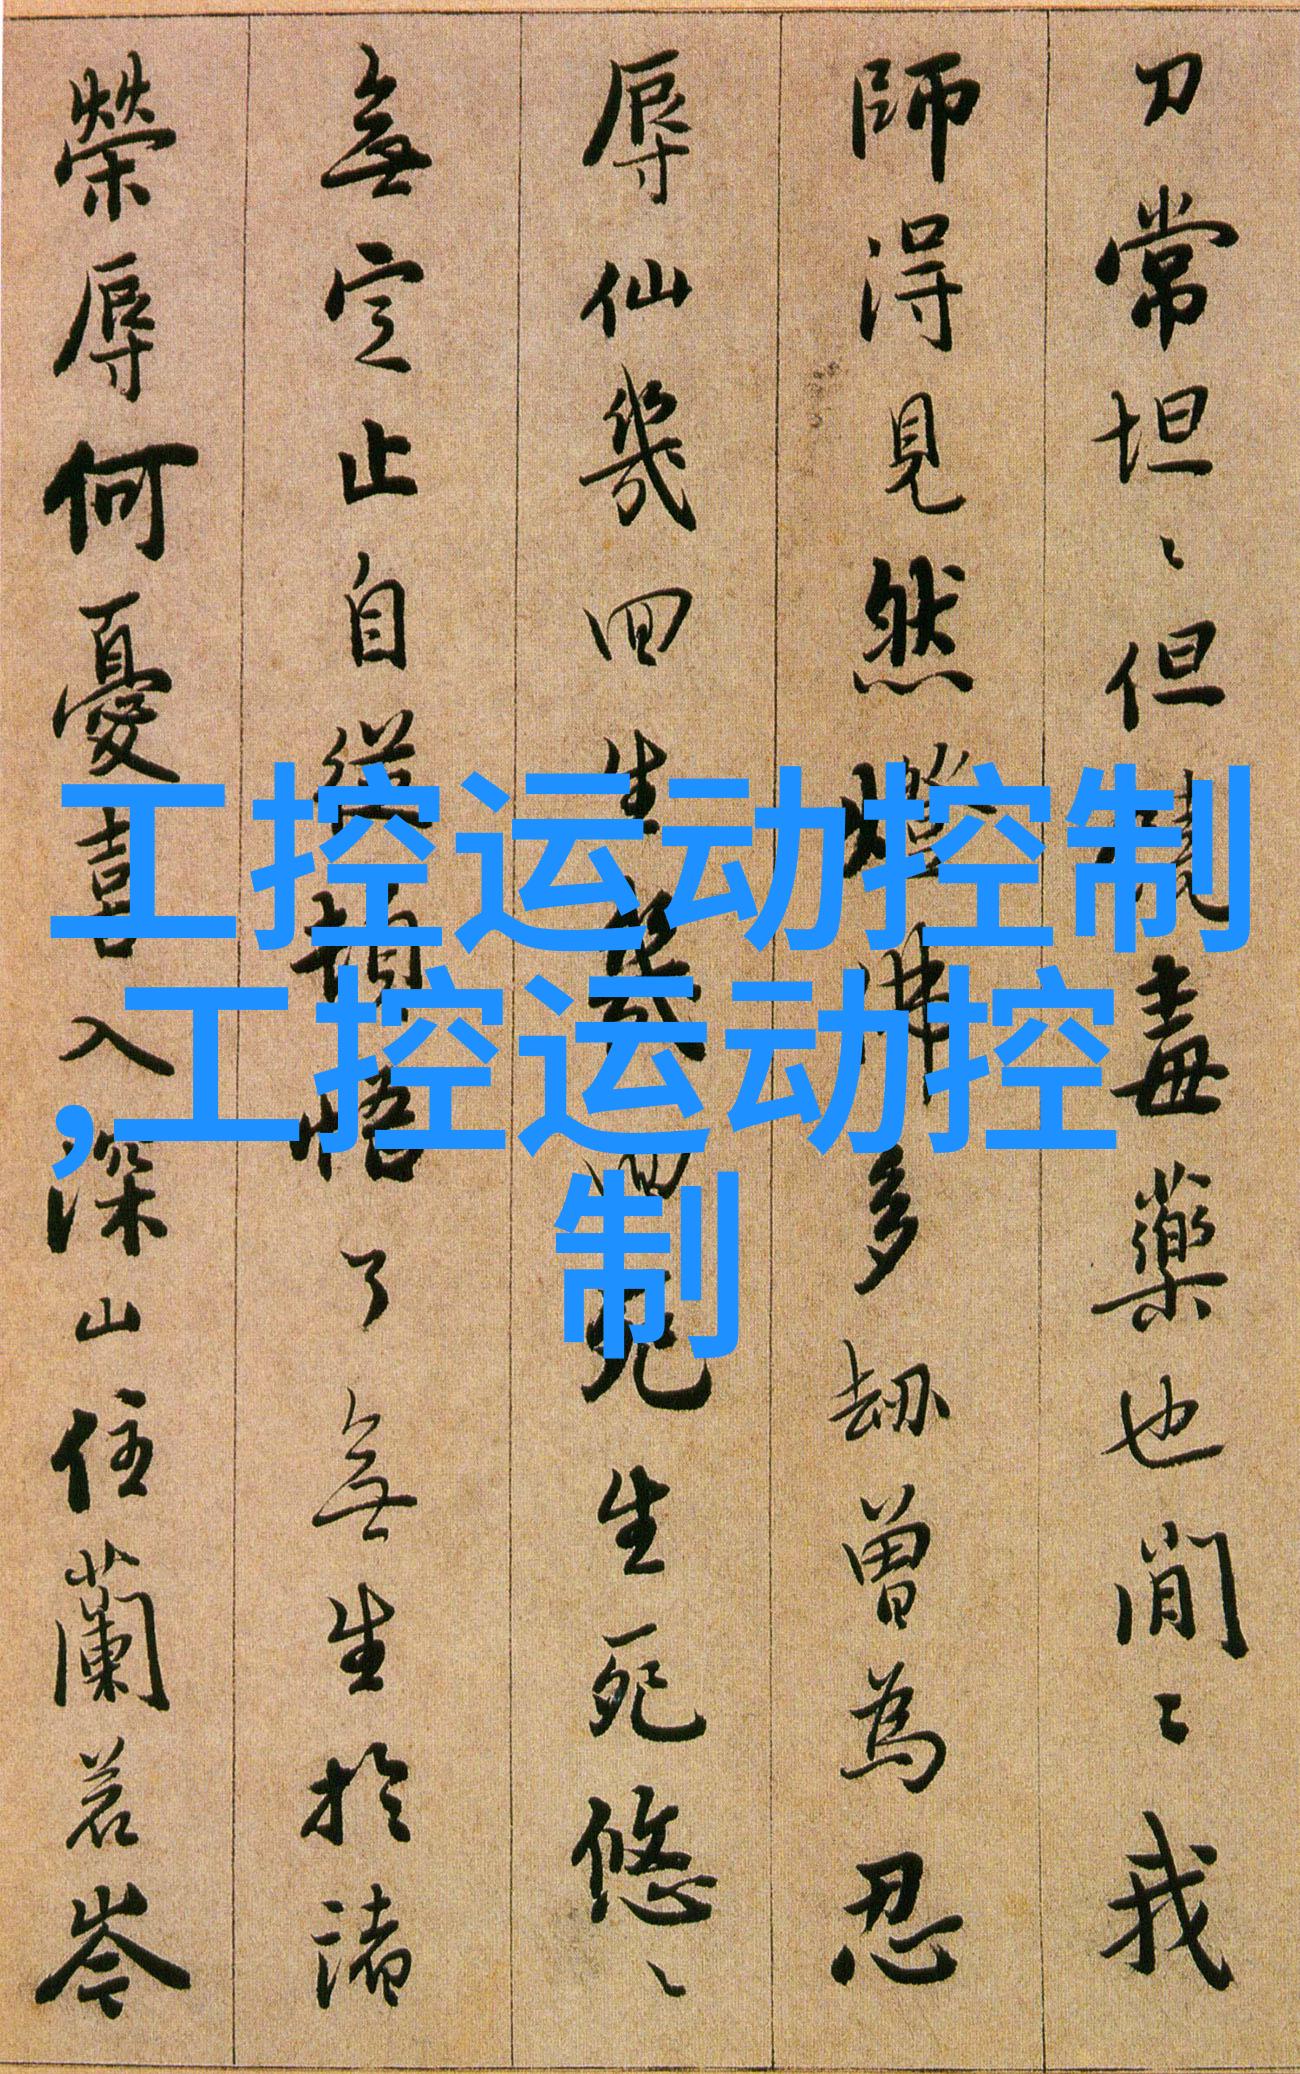 刀常坦々但饒毒藥也閒々我
師得見然燈佛多劫曾為忍
辱仙幾回生幾回死生死悠々
無定止自從頓悟了無生於諸
榮辱何憂喜入深山住蘭若岑
工控运动控制
,工控运动控
制